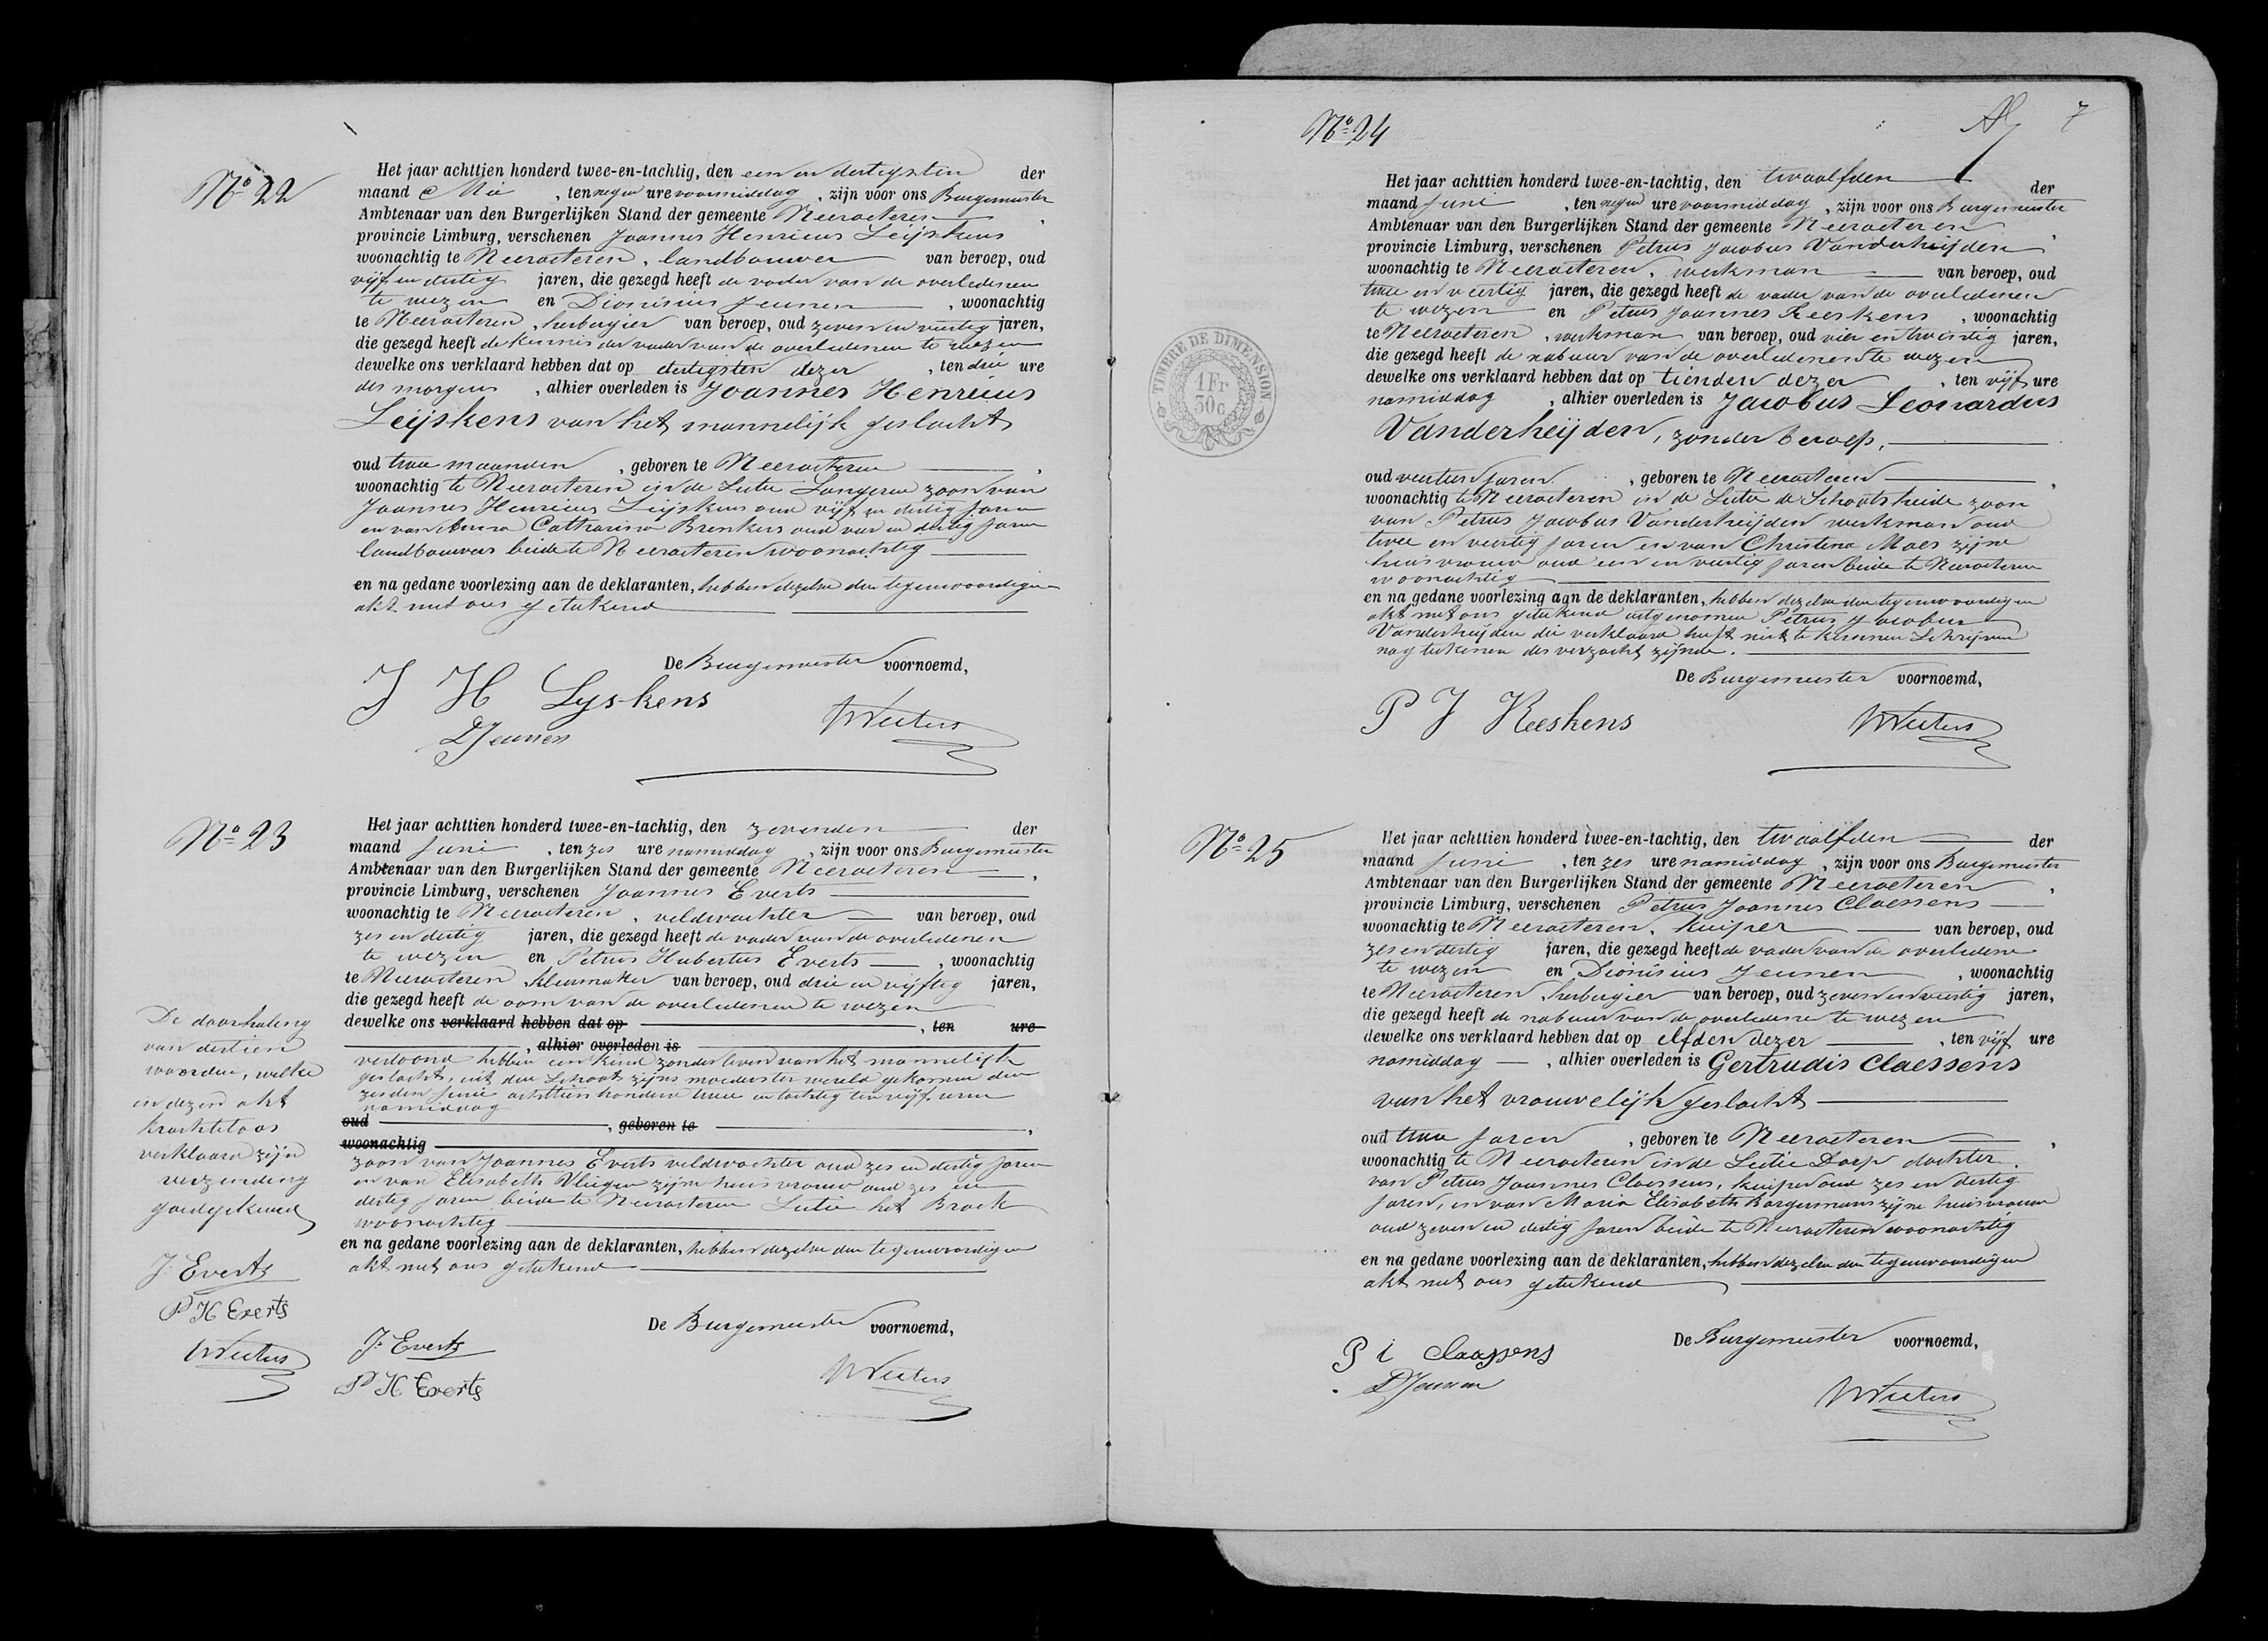 Nº 22
Het jaar achttien honderd twee-en-tachtig, den een en dertigsten der
maand Mei , ten negen ure voormiddag , zijn voor ons Burgemeester
Ambtenaar van den Burgerlijken Stand der gemeente Neeroeteren ,
provincie Limburg, verschenen Joannes Henricus Leijskens
woonachtig te Neeroeteren, landbouwer van beroep, oud
vijf en dertig jaren, die gezegd heeft de vader van de overledenen
te wezen en Dionisius Jeunen , woonachtig
te Neeroeteren, herbergier van beroep, oud zeven en veertig jaren,
die gezegd heeft de kennis der vader van de overledenen te wezen
dewelke ons verklaard hebben dat op dertigsten dezer , ten drie ure
des morgens , alhier overleden is Joannes Henricus
Leijskens van het mannelijk geslacht
oud twee maanden , geboren te Neeroeteren ,
woonachtig te Neeroeteren in de Sectie Langeren zoon van
Joannes Henricus Leijskens oud vijf en dertig jaren
en van Anna Catharina Brenkers oud vier en dertig jaren
landbouwers beide te Neeroeteren woonachtig
en na gedane voorlezing aan de deklaranten, hebben dezelve den tegenwoordigen
akt met ons geteekend
De Burgemeester voornoemd,
J H Lyskens
D Jeunen
W Neeters
Nº 23
Het jaar achttien honderd twee-en-tachtig, den zevenden der
maand Juni , ten zes ure namiddag , zijn voor ons Burgemeester
Ambtenaar van den Burgerlijken Stand der gemeente Neeroeteren ,
provincie Limburg, verschenen Joannes Everts
woonachtig te Neeroeteren, veldwachter van beroep, oud
zes en dertig jaren, die gezegd heeft de vader van de overledenen
te wezen en Petrus Hubertus Everts , woonachtig
te Neeroeteren, kleermaker van beroep, oud drie en vijftig jaren,
die gezegd heeft de oom van de overledenen te wezen
dewelke ons verklaard hebben dat op , ten ure
, alhier overleden is
vertoond hebben een kind zonder leven van het mannelijk
geslacht, uit den Schoot zijns moeders ter wereld gekomen den
zesden Junie achttien honderd twee en tachtig ten vijf uren
namiddag
oud , geboren te ,
woonachtig
zoon van Joannes Everts veldwachter oud zes en dertig jaren
en van Elisabeth Vliegen zijne huisvrouw oud zes en
dertig jaren beide te Neeroeteren Sectie het Broek
woonachtig
en na gedane voorlezing aan de deklaranten, hebben dezelve den tegenwoordigen
akt met ons geteekend
De Burgemeester voornoemd,
J. Everts
P H Everts
De doorhaling
van dertien
woorden, welke
in dezen akt
krachteloos
verklaard zijn
verzending
goedgekeurd
J. Everts
P H Everts
Nº 24
7
Het jaar achttien honderd twee-en-tachtig, den twaalfden der
maand Juni , ten negen ure voormiddag , zijn voor ons Burgemeester
Ambtenaar van den Burgerlijken Stand der gemeente Neeroeteren ,
provincie Limburg, verschenen Petrus Jacobus Vanderheijden
woonachtig te Neeroeteren, werkman van beroep, oud
twee en veertig jaren, die gezegd heeft de vader van de overledenen
te wezen en Petrus Joannes Keeskens , woonachtig
te Neeroeteren , werkman van beroep, oud vier en twintig jaren,
die gezegd heeft de nabuur van de overledenen te wezen
dewelke ons verklaard hebben dat op tienden dezer , ten vijf ure
namiddag , alhier overleden is Jacobus Leonardus
Vanderheijden, zonder beroep,
oud veertien jaren , geboren te Neeroeteren ,
woonachtig te Neeroeteren in de Sectie de Schootsheide zoon
van Petrus Jacobus Vanderheijden werkman oud
twee en veertig jaren en van Christina Maes zijne
huisvrouw oud een en veertig jaren beide te Neeroeteren
woonachtig
en na gedane voorlezing aan de deklaranten, hebben dezelve den tegenwoordigen
akt met ons geteekend uitgenomen Petrus Jacobus
Vanderheijden die verklaard heeft niet te kunnen Schrijven
nog teekenen des verzocht zijnde.
De Burgemeester voornoemd,
P J Keeskens
TIMBRE DE DIMENSION
1 Fr
30c
Nº 25
Het jaar achttien honderd twee-en-tachtig, den twaalfden der
maand Junie , ten zes ure namiddag , zijn voor ons Burgemeester
Ambtenaar van den Burgerlijken Stand der gemeente Neeroeteren ,
provincie Limburg, verschenen Petrus Joannes Claessens
woonachtig te Neeroeteren, kuiper van beroep, oud
zes en dertig jaren, die gezegd heeft de vader van de overledene
te wezen en Dionisius Jeunen , woonachtig
te Neeroeteren, herbergier van beroep, oud zeven en veertig jaren,
die gezegd heeft de nabuur van de overledene te wezen
dewelke ons verklaard hebben dat op elfden dezer , ten vijf ure
namiddag , alhier overleden is Gertrudis Claessens
van het vrouwelijk geslacht
oud twee jaren , geboren te Neeroeteren ,
woonachtig te Neeroeteren in de Sectie Dorp dochter
van Petrus Joannes Claessens, kuiper oud zes en dertig
jaren, en van Maria Elisabeth Borgermans zijne huisvrouw
oud zeven en dertig jaren beide te Neeroeteren woonachtig
en na gedane voorlezing aan de deklaranten, hebben dezelve den tegenwoordigen
akt met ons geteekend
De Burgemeester voornoemd,
P i Claassens
D Jeunen